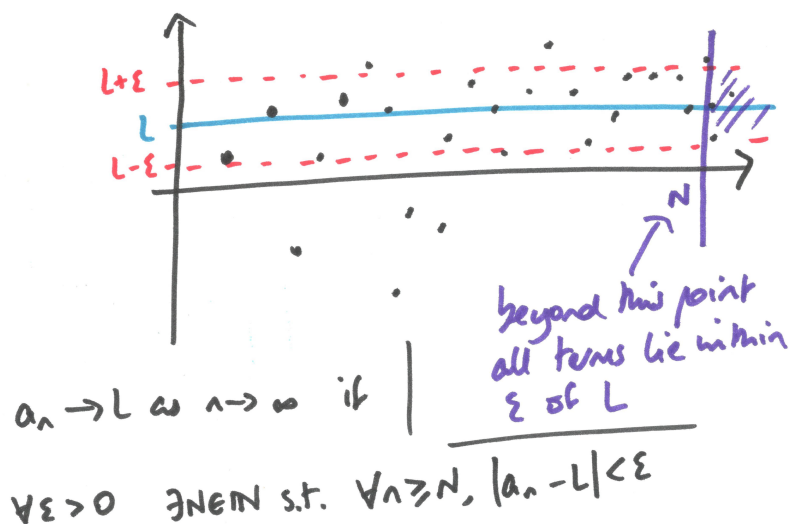 L+ε
L
L-ε
N
beyond this point
all terms lie within
ε of L
aₙ → L as n → ∞ if
∀ε > 0 ∃N∈ℕ s.t. ∀n ≥ N, |aₙ - L| < ε